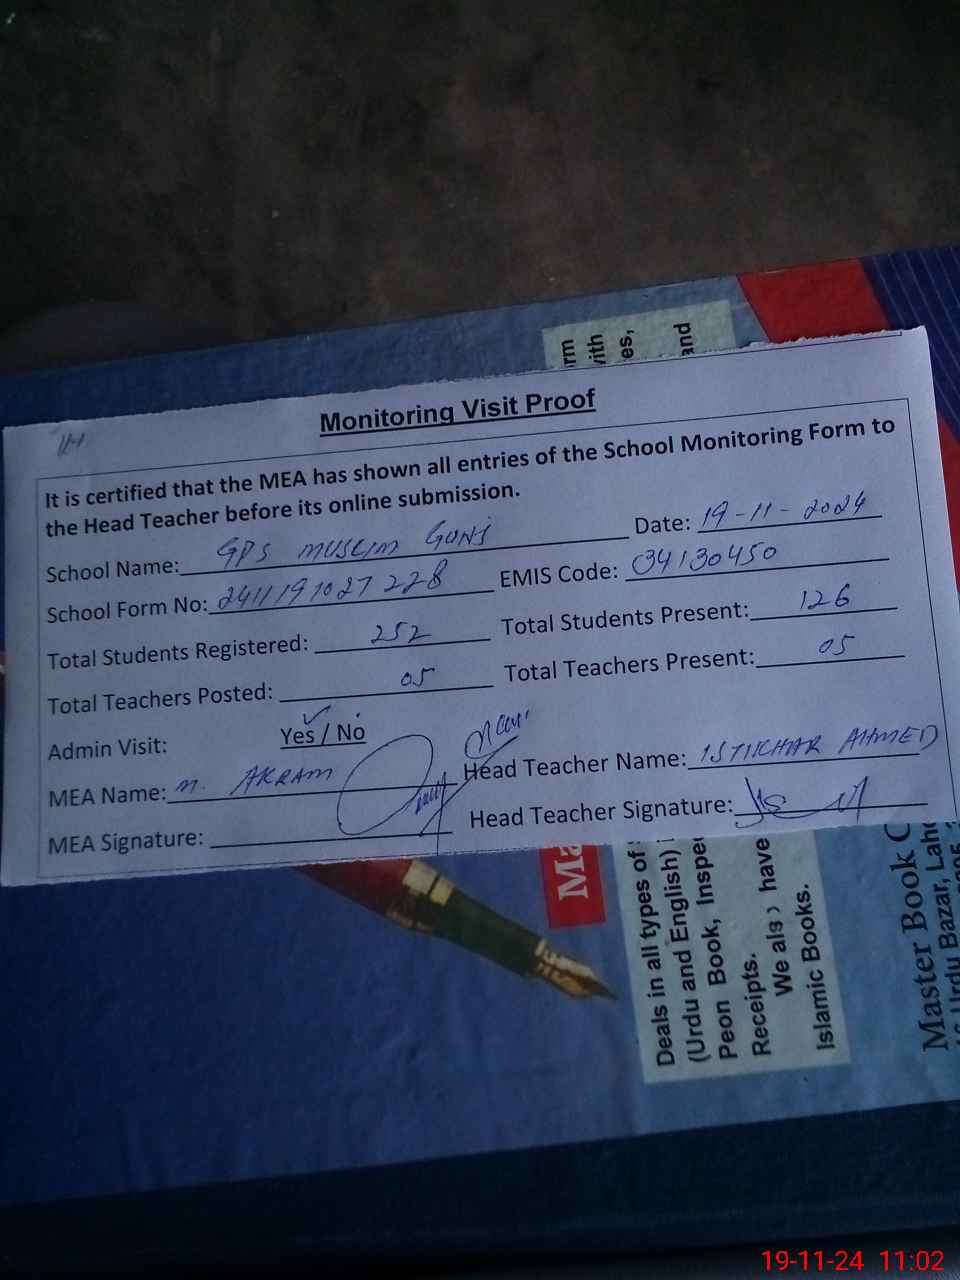 Monitoring Visit Proof
It is certified that the MEA has shown all entries of the School Monitoring Form to
the Head Teacher before its online submission.
School Name: GPS MUSLIM GUNJ Date: 19-11-2024
School Form No: 2411191027228 EMIS Code: 34130450
Total Students Registered: 252 Total Students Present: 126
Total Teachers Posted: 05 Total Teachers Present: 05
Admin Visit: Yes / No
MEA Name: M. AKRAM Head Teacher Name: ISTIKHAR AHMED
MEA Signature: Head Teacher Signature:
rm
ith
es,
and
Ma
Deals in all types of
(Urdu and English)
Peon Book, Inspe
Receipts.
We als have
Islamic Books.
Master Book C
Urdu Bazar, Laho
19-11-24 11:02